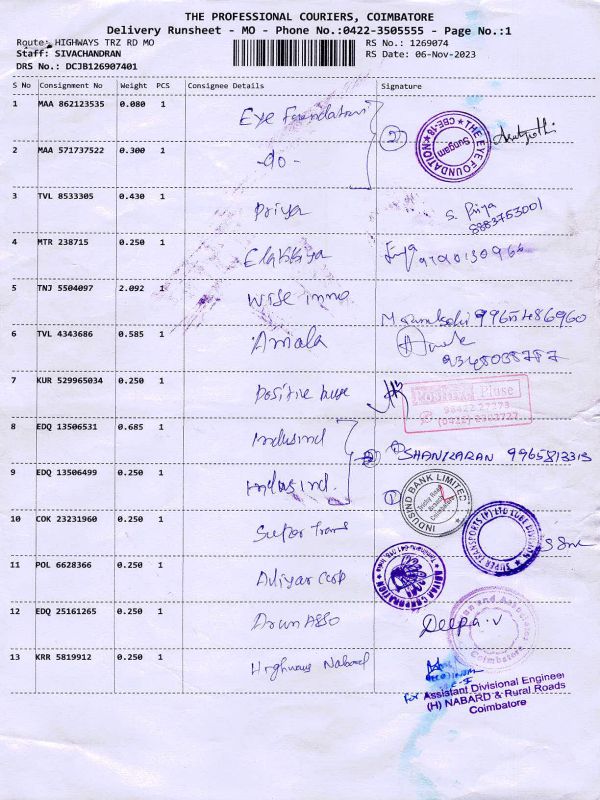 THE PROFESSIONAL COURIERS, COIMBATORE
Delivery Runsheet - MO - Phone No.:0422-3505555 - Page No.:1
Route: HIGHWAYS TRZ RD MO
RS No.: 1269074
Staff: SIVACHANDRAN
RS Date: 06-Nov-2023
DRS No.: DCJB126907401
S No Consignment No Weight PCS Consignee Details Signature
1 MAA 862123535 0.080 1 Eye Foundation
2 THE EYE FOUNDATION CBE-18 Sungam
2 MAA 571737522 0.300 1 -do-
3 TVL 8533305 0.430 1 Priya S. Priya
8883753001
4 MTR 238715 0.250 1 Elakkiya
5 TNJ 5504097 2.092 1 Wise inno 9965486960
6 TVL 4343686 0.585 1 Amala
9345038787
7 KUR 529965034 0.250 1 Positive
Positive Pluse
98422 27273
8 EDQ 13506531 0.685 1 Indusind
SHANKARAN 9965813313
9 EDQ 13506499 0.250 1 Indusind. 1
INDUSIND BANK LIMITED Trichy Road Branch Coimbatore
10 COK 23231960 0.250 1 Super Trans
SUPER TRANSPORTS (P) LTD
11 POL 6628366 0.250 1 Adiyar Corp
ADIYAR CORPORATION
12 EDQ 25161265 0.250 1 Arun Asso Deepa.V
Arun and Associates Coimbatore
13 KRR 5819912 0.250 1 Highways Nabard
For Assistant Divisional Engineer
(H) NABARD & Rural Roads
Coimbatore